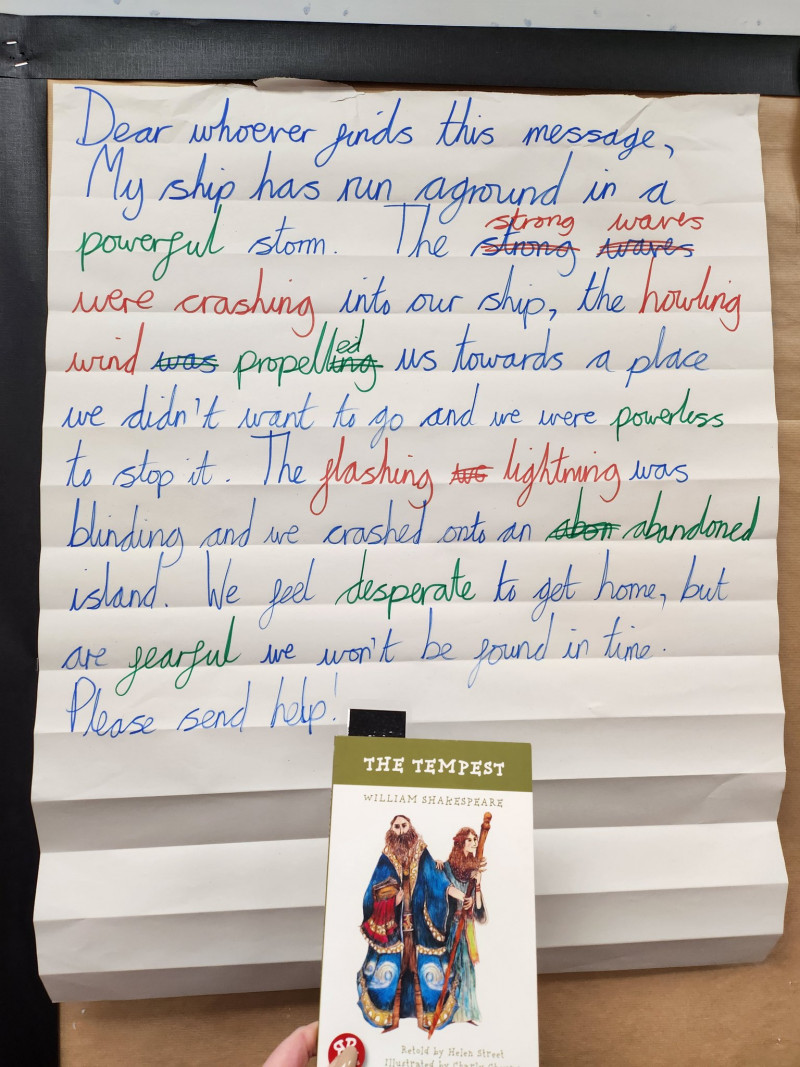 Dear whoever finds this message,
My ship has run aground in a
strong waves
powerful storm. The strong waves
were crashing into our ship, the howling
wind was propelling ed us towards a place
we didn't want to go and we were powerless
to stop it. The flashing lightning was
blinding and we crashed onto an abon abandoned
island. We feel desperate to get home, but
are fearful we won't be found in time.
Please send help!
THE TEMPEST
WILLIAM SHAKESPEARE
Retold by Helen Street
Illustrated by